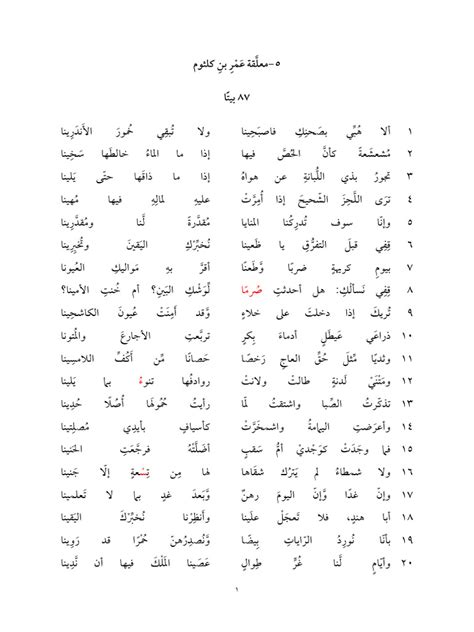 ٥-معلَّقة عَمْرِ بنِ كلثوم
٨٧ بيتًا
١ ألا هُبِّي بصَحنِكِ فاصبَحِينا ولا تُبقِي خُمورَ الأَندَرِينا
٢ مُشَعشَعةً كأنَّ الحُصَّ فيها إذا ما الماءُ خالطَها سَخِينا
٣ تجورُ بذي اللُّبانةِ عن هواهُ إذا ما ذاقَها حتّى يَلينا
٤ ترَى اللَّحِزَ الشَّحيحَ إذا أُمِرَّتْ عليهِ لمالِهِ فيها مُهينا
٥ وإنّا سوف تُدرِكُنا المنايا مُقدَّرةً لَّنا ومُقدَّرِينا
٦ قِفِي قبلَ التفرُّقِ يا ظَعينا نُخبِّرْكِ اليَقينَ وتُخبِرِينا
٧ بيومِ كريهةٍ ضربًا وَّطَعنًا أقرَّ بهِ مَواليكِ العُيونا
٨ قِفِي نَسألْكِ: هل أحدثتِ صُرمًا لِّوَشْكِ البَينِ؟ أم خُنتِ الأمينا؟
٩ تُريكَ إذا دخلتَ على خلاءٍ وَّقد أَمِنَتْ عُيونَ الكاشحِينا
١٠ ذراعَي عَيطَلٍ أدماءَ بِكرٍ تربَّعتِ الأجارعَ والمُتونا
١١ وثديًا مِّثلَ حُقِّ العاجِ رَخصًا حَصانًا مِّن أكُفِّ اللامسِينا
١٢ ومَتْنَيْ لَدنةٍ طالتْ ولانتْ روادفُها تنوءُ بما يَلينا
١٣ تذكّرتُ الصِّبا واشتقتُ لمّا رأيتُ حُمولَها أُصُلًا حُدِينا
١٤ وأعرَضتِ اليمامةُ واشمخَرَّتْ كأسيافٍ بأيدِي مُصلِتِينا
١٥ فما وجَدَتْ كوَجْدِيْ أمُّ سَقبٍ أضلَّتْهُ فرجَّعَتِ الحَنينا
١٦ ولا شمطاءُ لم يَترُك شقاها لها مِن تِسْعةٍ إلّا جَنينا
١٧ وإنّ غدًا وَّإنّ اليومَ رهنٌ وَّبَعدَ غدٍ بما لا تَعلمينا
١٨ أبا هندٍ، فلا تَعجَلْ علَينا وأَنظِرْنا نُخبِّرْكَ اليَقينا
١٩ بأنّا نُورِدُ الرّاياتِ بِيضًا وَّنُصدِرُهنّ حُمْرًا قد رَوِينا
٢٠ وأيّامٍ لَّنا غُرٍّ طِوالٍ عَصَينا المَلْكَ فيها أن نَّدِينا
١